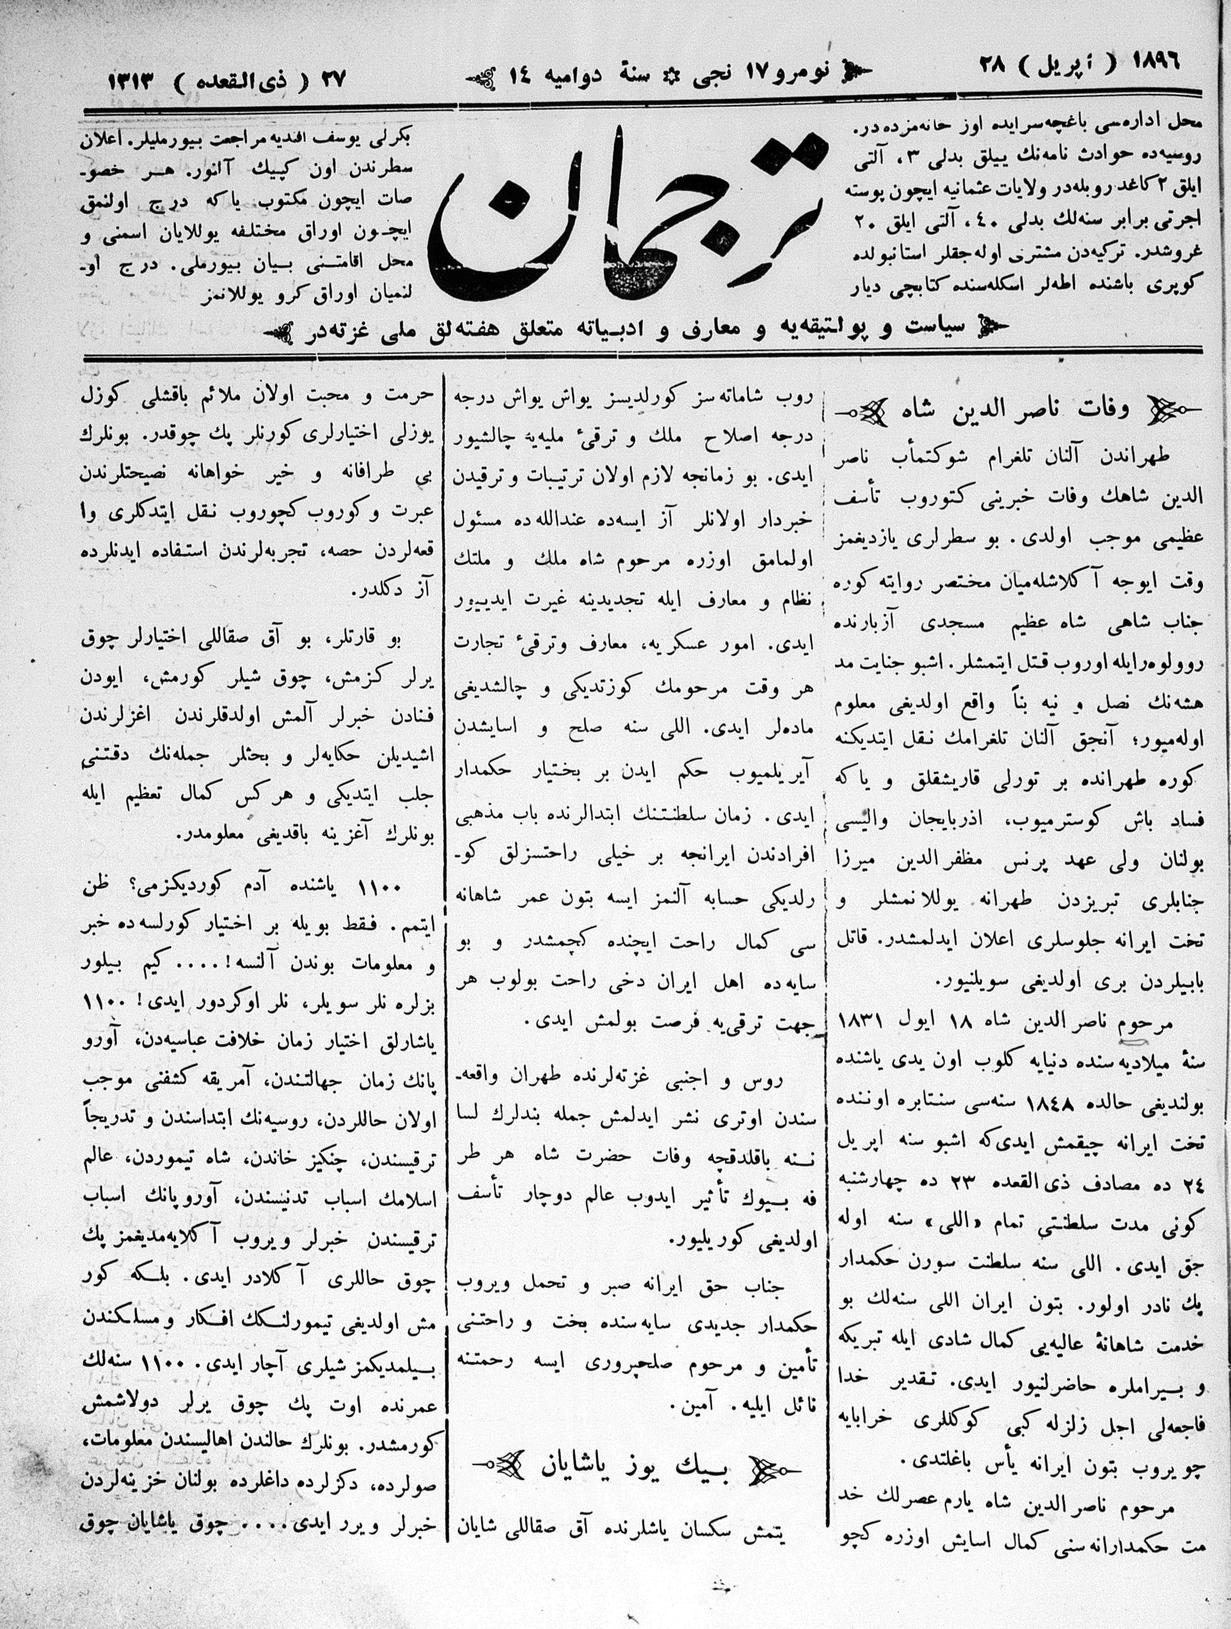 ١٨٩٦ ( اپريل ) ٢٨
نومرو ١٧ نجی ✲ سنهٔ دواميه ١٤
٢٧ ( ذی القعده ) ١٣١٣
محل اداره‌سی باغچه‌سرايده اوز خانه‌مزده در.
روسيه‌ده حوادث نامه‌نك ييللق بدلی ٣، آلتی
ايلق ٢ كاغد روبله‌در ولايات عثمانيه ايچون پوسته
اجرتی برابر سنه‌لك بدلی ٤٠، آلتی ايلق ٢٠
غروشدر. تركيه‌دن مشتری اوله‌جقلر استانبولده
كوپری باشنده اطه‌لر اسكله‌سنده كتابچی ديار
ترجمان
بكرلی يوسف افنديه مراجعت بيورمليلر. اعلان
سطرندن اون كپيك آلنور. هــر خصوـ
صات ايچون مكتوب ياكه درج اولنمق
ايچـون اوراق مختلفه يوللايان اسمنی و
محل اقامتـنی بـيان بيورملی. درج اوـ
لنميان اوراق كرو يوللانمز
سياست و پولتيقه‌يه و معارف و ادبـياته متعلق هفته‌لق ملی غزته‌در
وفات ناصر الدين شاه
طهراندن آلنان تلغرام شوكتمأب ناصر
الدين شاهك وفات خبرينی كتوروب تأسف
عظيمی موجب اولدی. بو سطرلری يازديغمز
وقت ايوجه آكلاشله‌ميان مختصر روايته كوره
جناب شاهی شاه عظيم مسجدی آزبارنده
روولوه‌رايله اوروب قتل ايتمشلر. اشبو جنايت مد
هشه‌نك نصل و نيه بناً واقع اولديغی معلوم
اوله‌ميور؛ آنجق آلنان تلغرامك نقل ايتديكنه
كوره طهرانده بر تورلی قاريشقلق و ياكه
فساد باش كوسترميوب، اذربايجان واليسی
بولنان ولی عهد پرنس مظفر الدين ميرزا
جنابلری تبريزدن طهرانه يوللانمشلر و
تخت ايرانه جلوسلری اعلان ايدلمشدر. قاتل
بابيلردن بری اولديغی سويلنيور.
مرحوم ناصر الدين شاه ١٨ ايول ١٨٣١
سنهٔ ميلاديه سنده دنيايه كلوب اون يدی ياشنده
بولنديغی حالده ١٨٤٨ سنه‌سی سنتابره اوننده
تخت ايرانه چيقمش ايدی‌كه اشبو سنه اپريل
٢٤ ده مصادف ذی القعده ٢٣ ده چهارشنبه
كونی مدت سلطنتی تمام «اللی» سنه اوله
جق ايدی. اللی سنه سلطنت سورن حكمدار
پك نادر اولور. بتون ايران اللی سنه‌لك بو
خدمت شاهانهٔ عاليه‌يی كمال شادی ايله تبريكه
و بـيراملره حاضرلنيور ايدی. تـقدير خدا
فاجعه‌لی اجل زلزله كبی كوكللری خرابايه
چويروب بتون ايرانه يأس باغلتدی.
مرحوم ناصر الدين شاه يارم عصرلك خد
مت حكمدارانه سنی كمال اسايش اوزره كچو
روب شاماته‌سز كورلديسز يواش يواش درجه
درجه اصلاح ملك و ترقیٔ مليه‌يه چالشيور
ايدی. بو زمانجه لازم اولان ترتيبات و ترقيدن
خبردار اولانلر آز ايسه‌ده عندالله ده مسئول
اولمامق اوزره مرحوم شاه ملك و ملتك
نظام و معارف ايله تجديدينه غيرت ايديـيور
ايدی. امور عسكريه، معارف وترقیٔ تجارت
هر وقت مرحومك كوزتديكی و چالشديغی
ماده‌لر ايدی. اللی سنه صلح و اسايشدن
آيريلميوب حكم ايدن بر بختيار حكمدار
ايدی. زمان سلطنتـنك ابتدالرنده باب مذهبی
افرادندن ايرانجه بر خيلی راحتسزلق كوـ
رلديكی حسابه آلنمز ايسه بتون عمر شاهانه
سی كمال راحت ايچنده كچمشدر و بو
سايه‌ده اهل ايران دخی راحت بولوب هر
جهت ترقی‌يه فرصت بولمش ايدی.
روس و اجنبی غزته‌لرنده طهران واقعه‌ـ
سندن اوتری نشر ايدلمش جمله بندلرك لسا
نـنه باقلدقچه وفات حضرت شاه هر طر
فه بـيوك تأثير ايدوب عالم دوچار تأسف
اولديغی كوريليور.
جناب حق ايرانه صبر و تحمل ويروب
حكمدار جديدی سايه سنده بخت و راحتنی
تأمين و مرحوم صلحپروری ايسه رحمتنه
نائل ايليه. آمين.
بـيك يوز ياشايان
يتمش سكسان ياشلرنده آق صقاللی شايان
حرمت و محبت اولان ملائم باقشلی كوزل
يوزلی اختيارلری كورنلر پك چوقدر. بونلرك
بی طرافانه و خير خواهانه نصيحتلرندن
عبرت وكوروب كچوروب نقل ايتدكلری وا
قعه‌لردن حصه، تجربه‌لرندن استـفاده ايدنلرده
آز دكلدر.
بو قارتلر، بو آق صقاللی اختيارلر چوق
يرلر كـزمش، چوق شيلر كورمش، ايودن
فـنادن خبرلر آلمش اولدقلرندن اغزلرندن
اشيديلن حكايه‌لر و بحثلر جمله‌نك دقتـنی
جلب ايتديكی و هركس كمال تعظيم ايله
بونلرك آغزينه باقديغی معلومدر.
١١٠٠ ياشنده آدم كورديكزمی؟ ظن
ايتمم. فـقط بويله بر اختيار كورلسه‌ده خبر
و معلومات بوندن آلنسه!.... كيم بـيلور
بزلره نلر سويلر، نلر اوكردور ايدی! ١١٠٠
ياشارلق اختيار زمان خلافت عباسيه‌دن، آورو
پانك زمان جهالتندن، آمريقه كشفنی موجب
اولان حاللردن، روسيه‌نك ابتداسندن و تدريجاً
ترقيسندن، چنكيز خاندن، شاه تيموردن، عالم
اسلامك اسباب تدنيسندن، آوروپانك اسباب
ترقيسندن خبرلر ويروب آكلايه‌مديغمز پك
چوق حاللری آكلادر ايدی. بلـكه كور
مش اولديغی تيمورلنـكك افـكار ومسلـكندن
بـيلمديكمز شيلری آچار ايدی. ١١٠٠ سنه‌لك
عمرنده اوت پك چوق يرلر دولاشمش
كورمشدر. بونلرك حالندن اهاليسندن معلومات،
صولرده، دكزلرده داغلرده بولنان خزينه‌لردن
خبرلر ويرر ايدی.... چوق ياشايان چوق